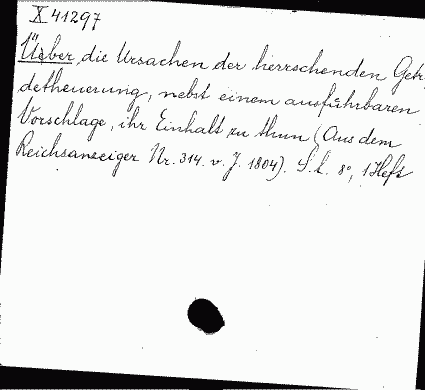 X 41297
Ueber die Ursachen der herrschenden Getr
detheuerung, nebst einem ausführbaren
Vorschlage, ihr Einhalt zu thun (Aus dem
Reichsanzeiger Nr. 314. v. J. 1804). S. l. 8°, 1 Heft